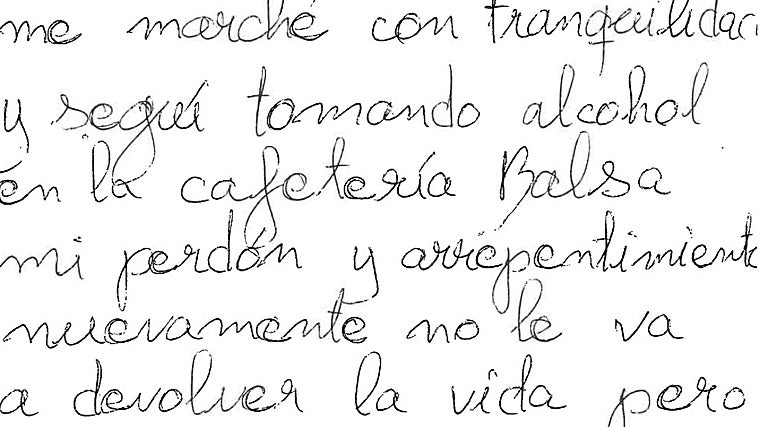 me marché con tranquilidad
y seguí tomando alcohol
en la cafetería Balsa
mi perdón y arrepentimiento
nuevamente no le va
a devolver la vida pero